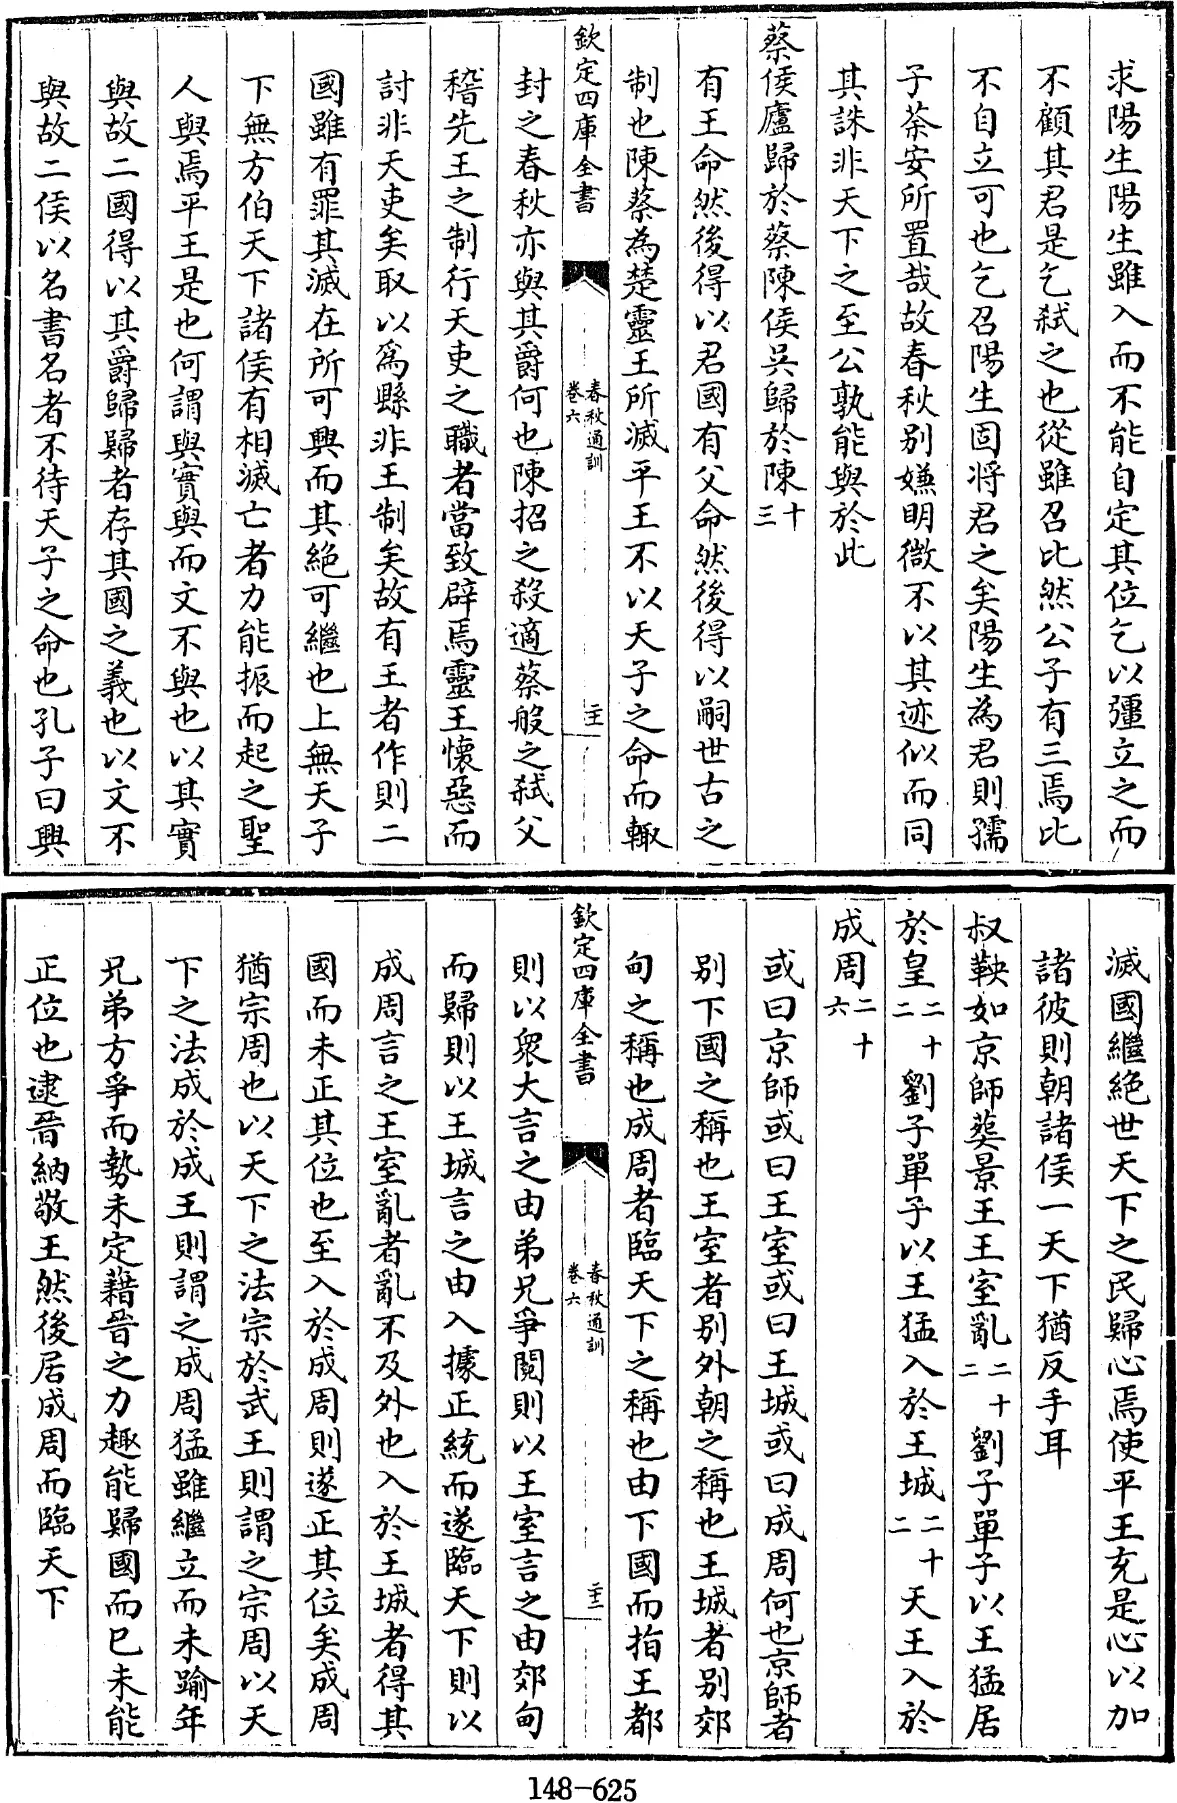 求陽生陽生雖入而不能自定其位乞以彊立之而
不顧其君是乞弑之也從雖召比然公子有三焉比
不自立可也乞召陽生固将君之矣陽生為君則孺
子荼安所置哉故春秋别嫌明微不以其迹似而同
其誅非天下之至公孰能與於此
蔡侯廬歸於蔡陳侯吴歸於陳十三
有王命然後得以君國有父命然後得以嗣世古之
制也陳蔡為楚靈王所滅平王不以天子之命而輙
欽定四庫全書
春秋通訓
卷六
二十一
封之春秋亦與其爵何也陳招之殺適蔡般之弑父
稽先王之制行天吏之職者當致辟焉靈王懐惡而
討非天吏矣取以為縣非王制矣故有王者作則二
國雖有罪其滅在所可興而其絶可繼也上無天子
下無方伯天下諸侯有相滅亡者力能振而起之聖
人與焉平王是也何謂與實與而文不與也以其實
與故二國得以其爵歸歸者存其國之義也以文不
與故二侯以名書名者不待天子之命也孔子曰興
滅國繼絶世天下之民歸心焉使平王充是心以加
諸彼則朝諸侯一天下猶反手耳
叔鞅如京師葬景王王室亂二十二劉子單子以王猛居
於皇二十二劉子單子以王猛入於王城二十二天王入於
成周二十六
或曰京師或曰王室或曰王城或曰成周何也京師者
别下國之稱也王室者别外朝之稱也王城者别郊
甸之稱也成周者臨天下之稱也由下國而指王都
欽定四庫全書
春秋通訓
卷六
二十二
則以衆大言之由弟兄爭鬩則以王室言之由郊甸
而歸則以王城言之由入據正統而遂臨天下則以
成周言之王室亂者亂不及外也入於王城者得其
國而未正其位也至入於成周則遂正其位矣成周
猶宗周也以天下之法宗於武王則謂之宗周以天
下之法成於成王則謂之成周猛雖繼立而未踰年
兄弟方爭而勢未定藉晉之力趣能歸國而已未能
正位也逮晉納敬王然後居成周而臨天下
148-625